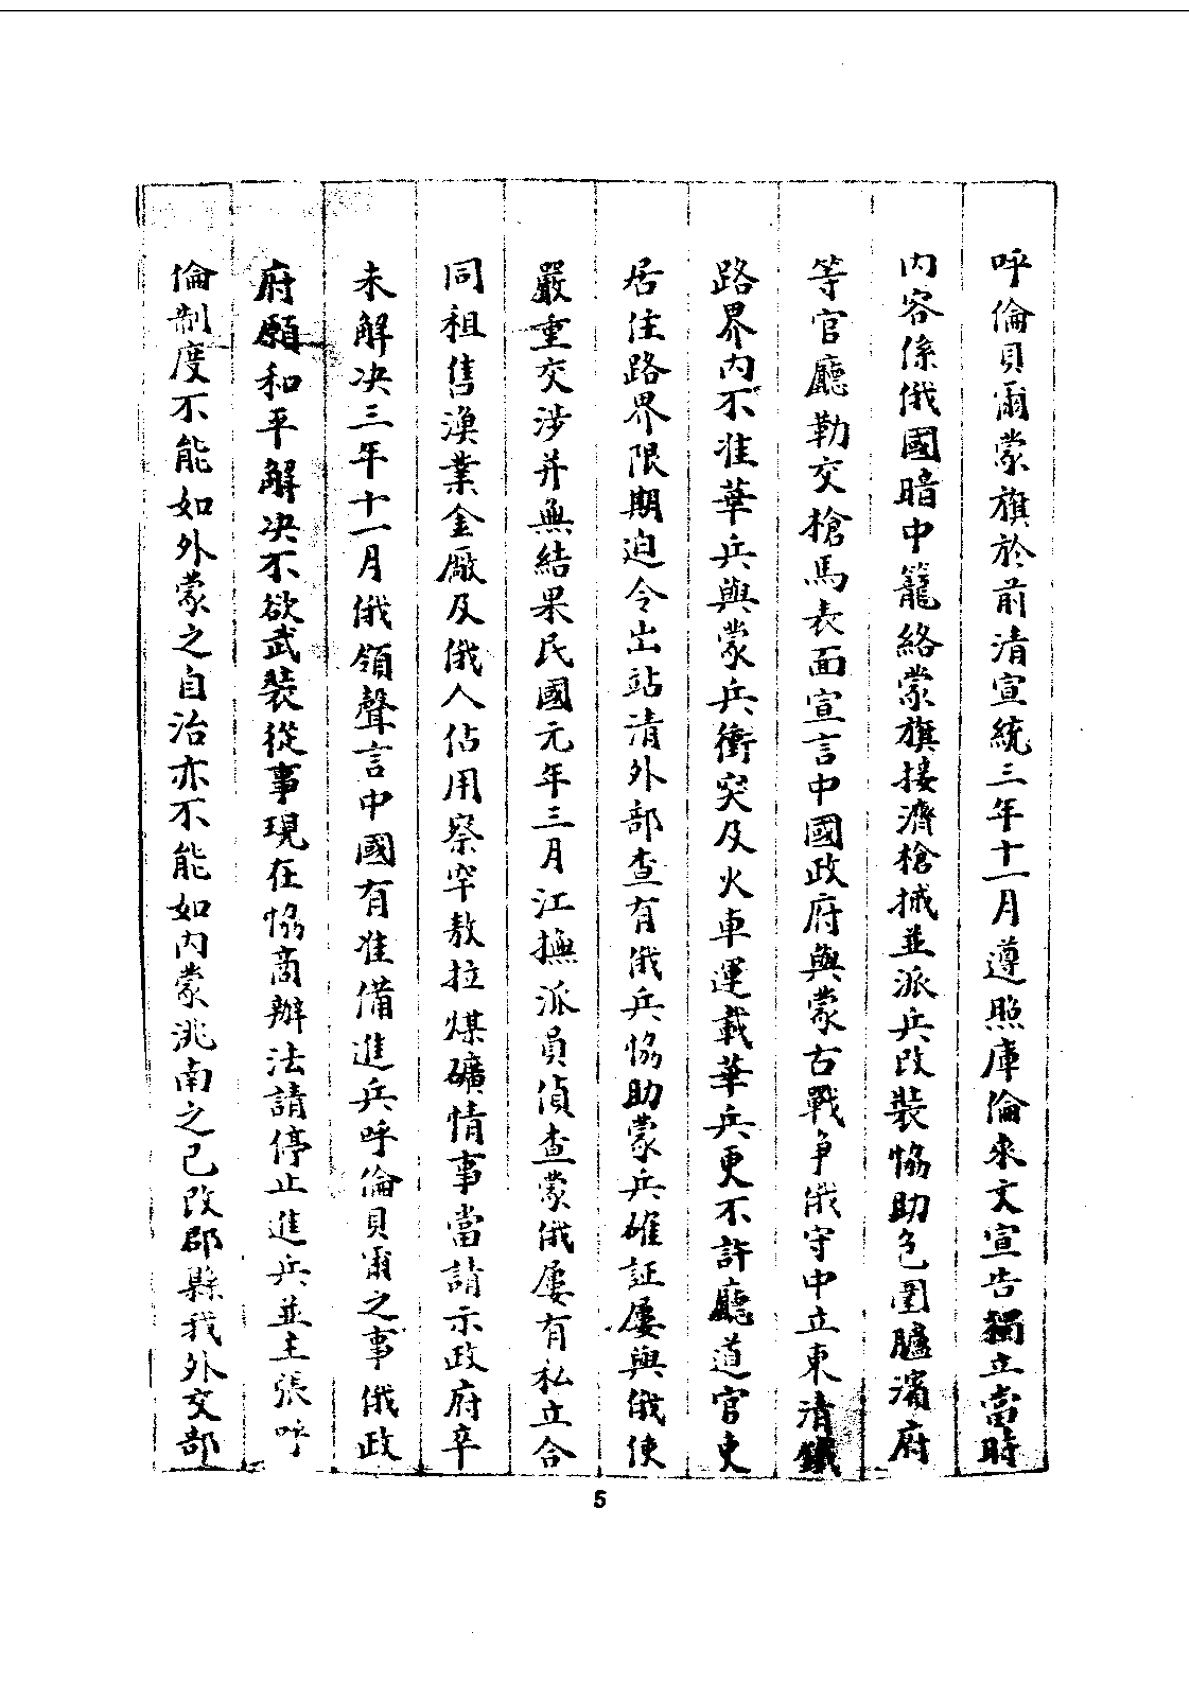 呼倫貝爾蒙旗於前清宣統三年十一月遵照庫倫來文宣告獨立當時
內容係俄國暗中籠絡蒙旗接濟槍械並派兵改裝恊助色圍臚濱府
等官廳勒交槍馬表面宣言中國政府與蒙古戰爭俄守中立東清鐵
路界內不准華兵與蒙兵衝突及火車運載華兵更不許廳道官吏
居住路界限期迫令出站清外部查有俄兵恊助蒙兵確証屢與俄使
嚴重交涉并無結果民國元年三月江撫派員偵查蒙俄屢有私立合
同租售漁業金厰及俄人佔用察罕敖拉煤礦情事當請示政府卒
未解决三年十一月俄領聲言中國有准備進兵呼倫貝爾之事俄政
府願和平解决不欲武裝從事現在恊商辦法請停止進兵並主張呼
倫制度不能如外蒙之自治亦不能如內蒙洮南之已改郡縣我外交部
5